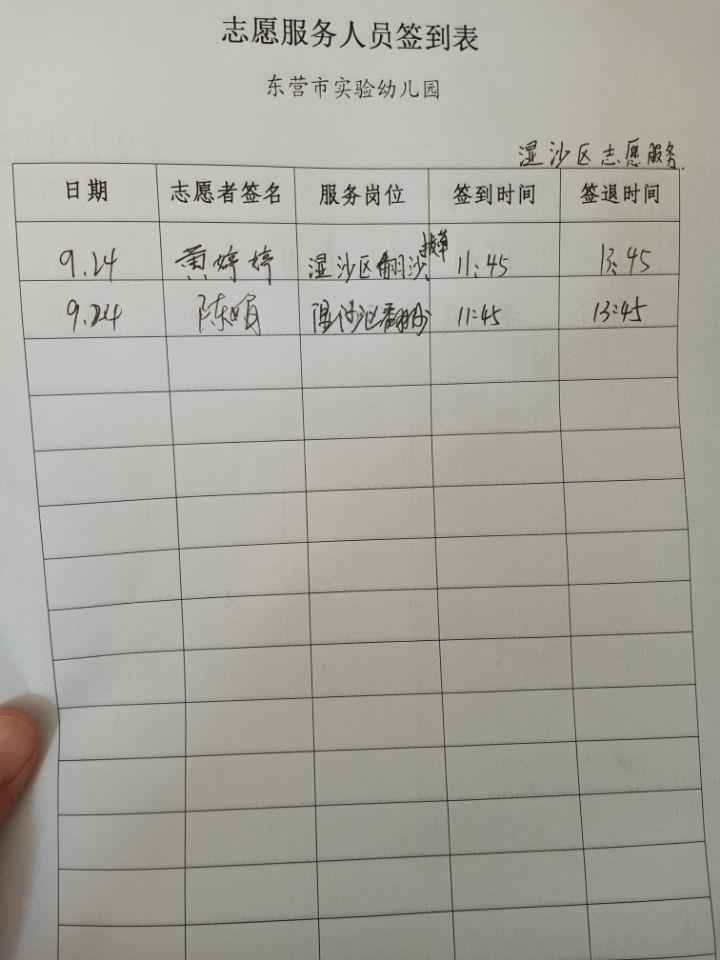 志愿服务人员签到表
东营市实验幼儿园
湿沙区志愿服务.
日期 志愿者签名 服务岗位 签到时间 签退时间
9.24 黄婷婷 湿沙区翻沙 11:45 13:45
9.24 陈娟 湿沙区翻沙 11:45 13:45